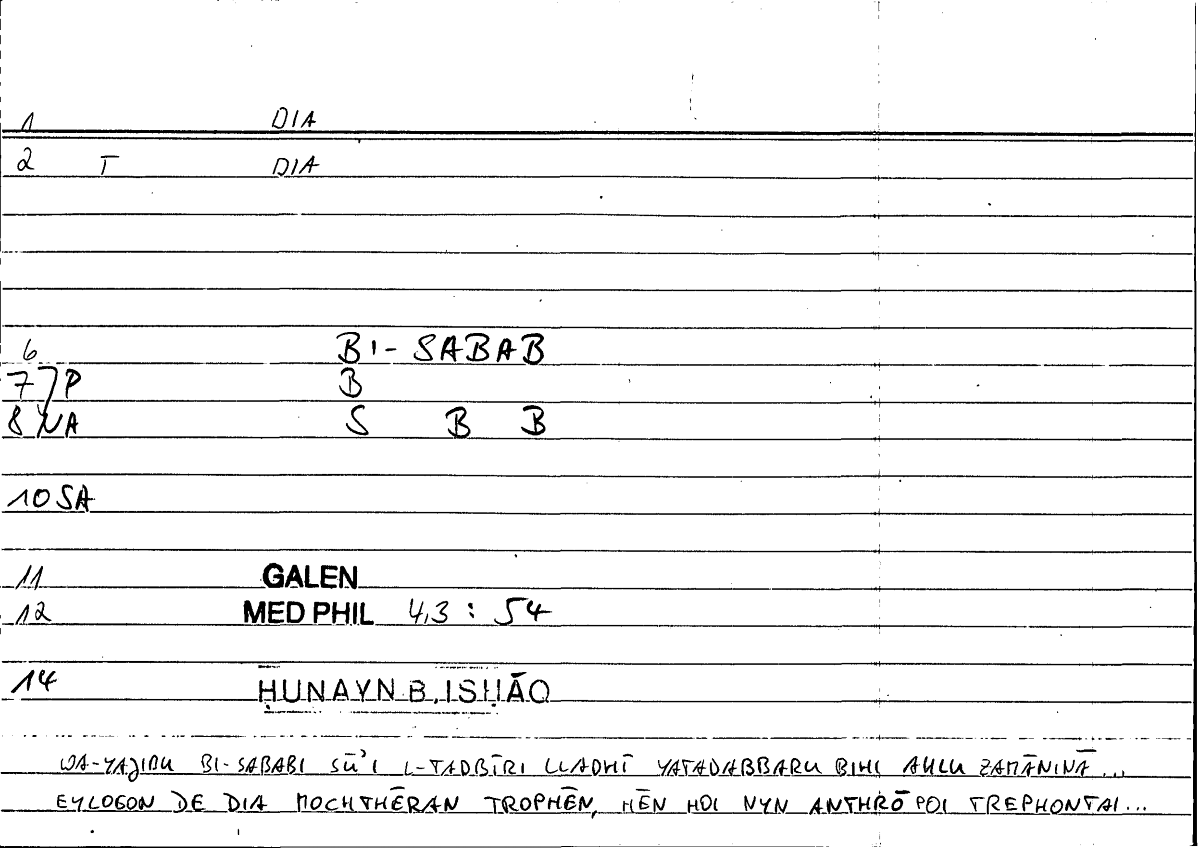 1 DIA
2 T DIA
6 BI- SABAB
7 P B
8 NA S B B
10 SA
11 GALEN
12 MED PHIL 4,3 : 54
14 ḤUNAYN B. ISḤĀQ
WA-YAJIBU BI-SABABI SŪʾI L-TADBĪRI LLADHĪ YATADABBARU BIHI AHLU ZAMĀNINĀ...
EYLOGON DE DIA MOCHTHĒRAN TROPHĒN, HĒN HOI NYN ANTHRŌPOI TREPHONTAI...